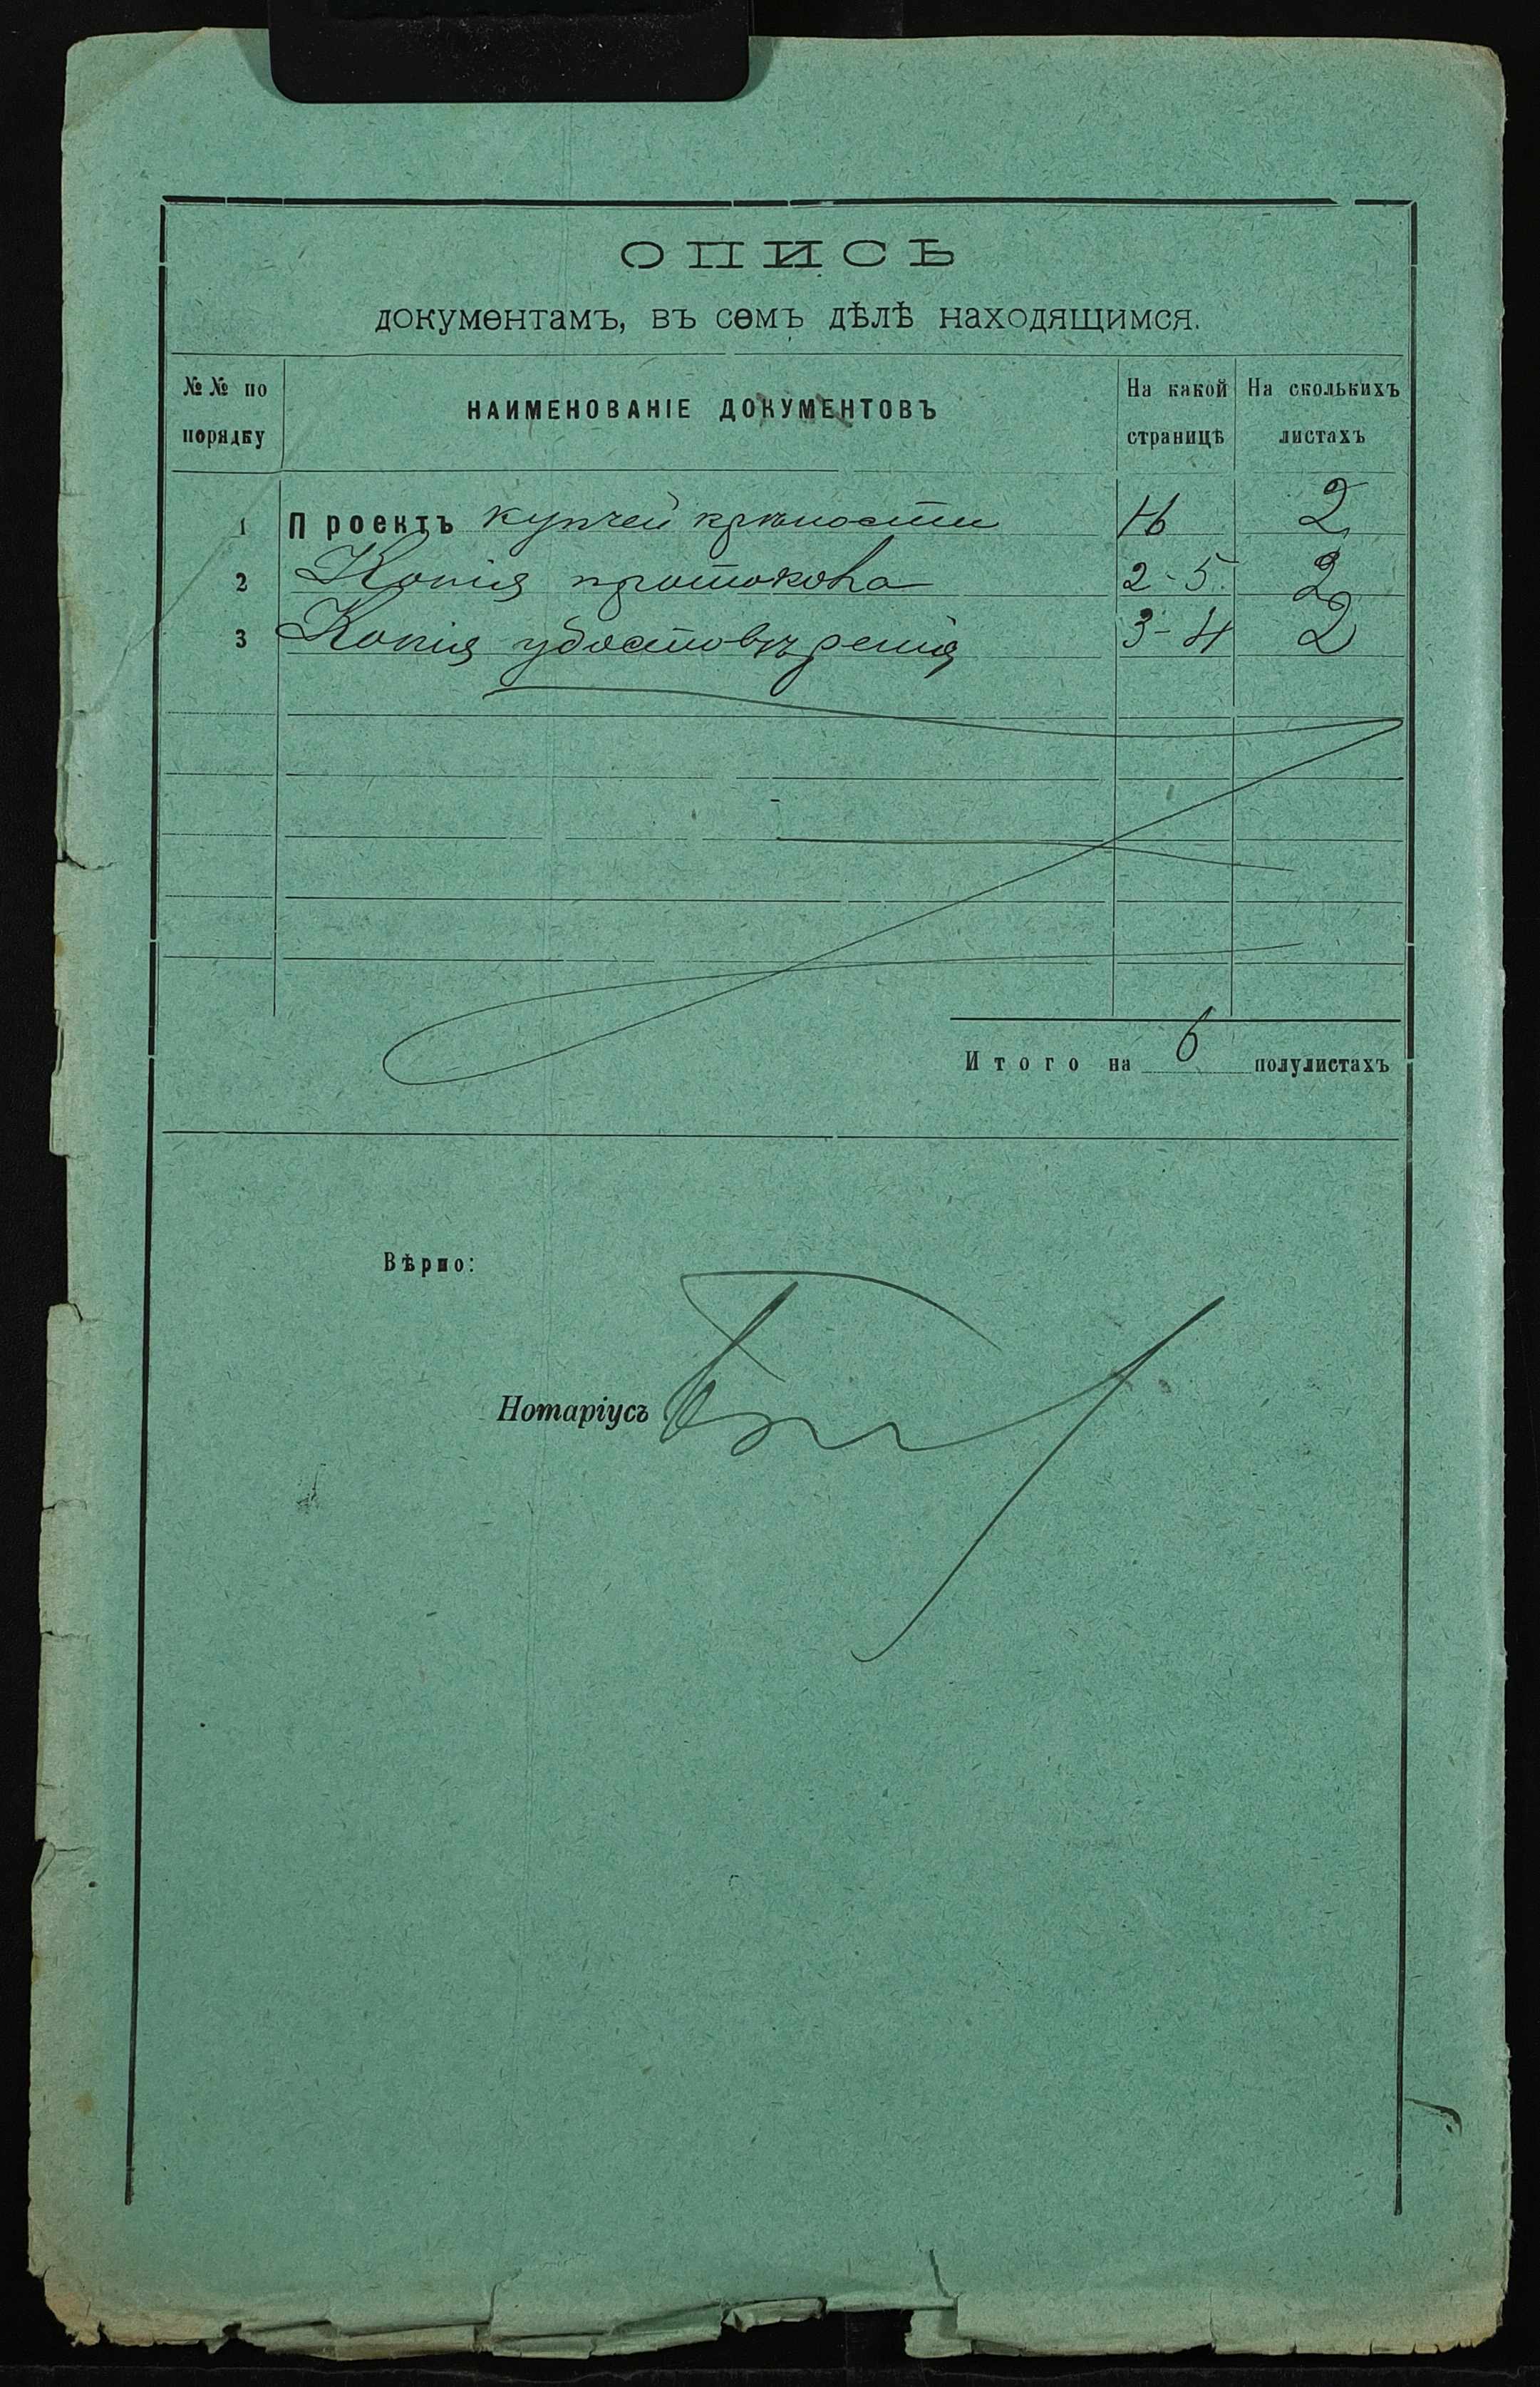 ОПИСЬ
документамъ, въ семъ дѣлѣ находящимся.
№№ по порядку
НАИМЕНОВАНІЕ ДОКУМЕНТОВЪ
На какой страницѣ
На сколькихъ листахъ
1 Проектъ купчей крѣпости 2
2 Копія протокола 2-5 2
3 Копія удостовѣренія 3-4 2
Итого на 6 полулистахъ
Вѣрно:
Нотаріусъ